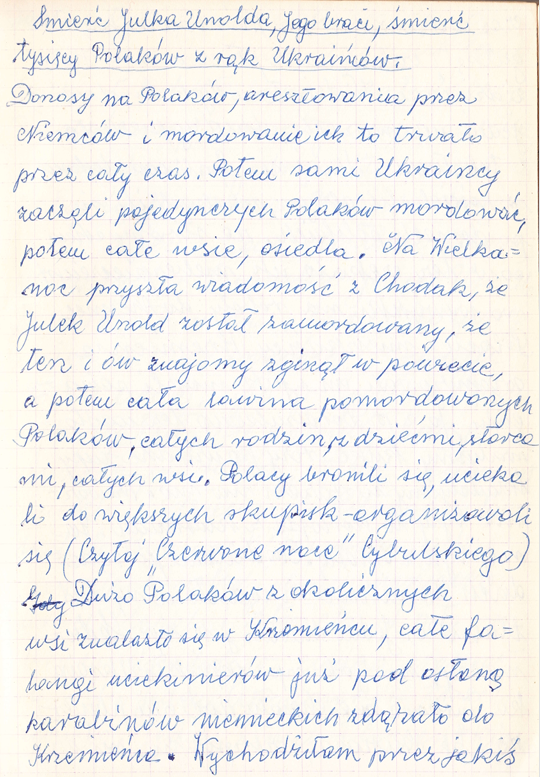 Śmierć Julka Unolda, Jego braci, śmierć
tysięcy Polaków z rąk Ukraińców.
Donosy na Polaków, aresztowania przez
Niemców i mordowanie ich to trwało
przez cały czas. Potem sami Ukraincy
zaczęli pojedynczych Polaków mordować,
potem całe wsie, osiedla. Na Wielka=
noc przyszła wiadomość z Chodak, że
Julek Unold został zamordowany, że
ten i ów znajomy zginął w powiecie,
a potem cała lawina pomordowanych
Polaków, całych rodzin, z dziećmi, starca
mi, całych wsi. Polacy bronili się, ucieka
li do większych skupisk - organizowali
się (Czytaj "Czerwone noce" Cybulskiego)
Gdy Dużo Polaków z okolicznych
wsi znalazło się w Krzemieńcu, całe fa=
langi uciekinierów już pod osłoną
karabinów niemieckich zdążało do
Krzemieńca. Wychodziłam przez jakiś